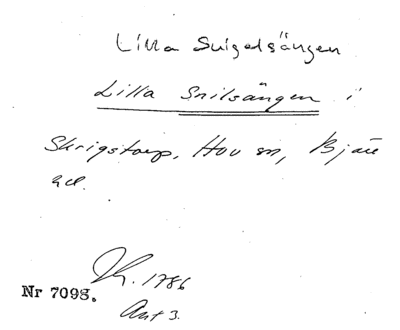 Lilla Snigelsängen
Lilla Snilsängen i
Skrigstorp, Hov sn, Bjäre
hd.
K. 1786
Nr 7098.
Akt 3.